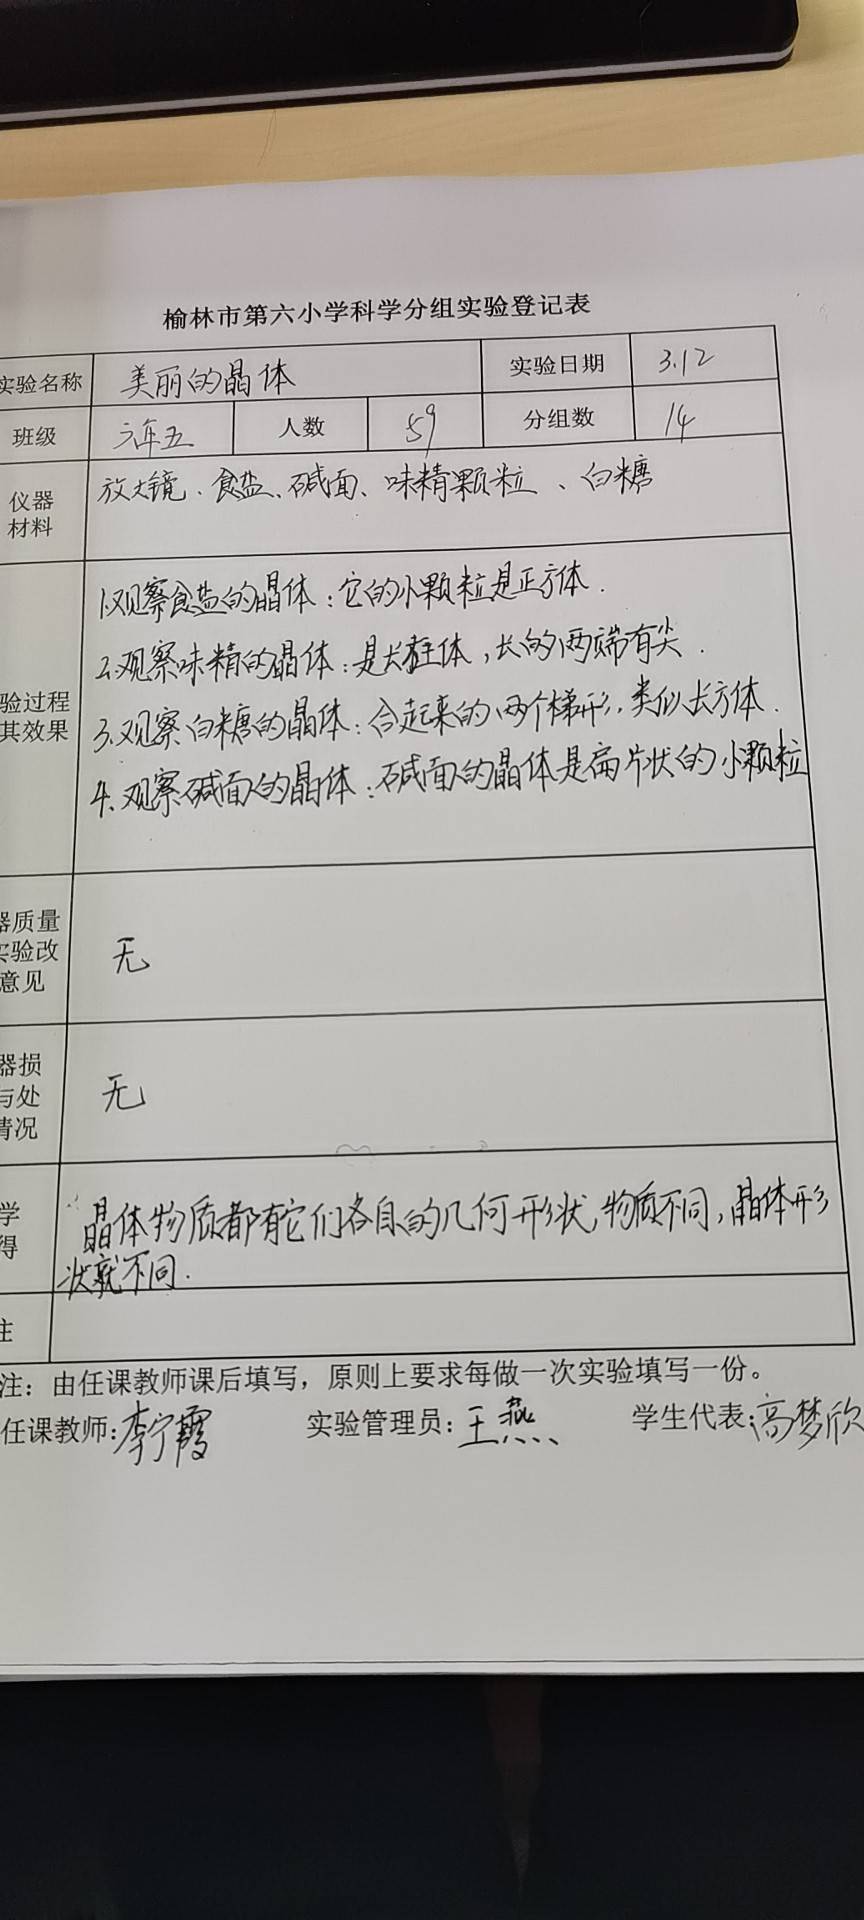 榆林市第六小学科学分组实验登记表
实验名称 美丽的晶体 实验日期 3.12
班级 六年五 人数 59 分组数 14
仪器 放大镜、食盐、碱面、味精颗粒、白糖
材料
1.观察食盐的晶体：它的小颗粒是正方体.
2.观察味精的晶体：是长柱体,长的两端有尖.
验过程
其效果 3.观察白糖的晶体：合起来的两个梯形,类似长方体.
4.观察碱面的晶体：碱面的晶体是扁片状的小颗粒
器质量
实验改 无
意见
器损
与处 无
情况
学 晶体物质都有它们各自的几何形状,物质不同,晶体形
得 状就不同.
注
注：由任课教师课后填写，原则上要求每做一次实验填写一份。
任课教师:李宁霞 实验管理员:王燕 学生代表:高梦欣